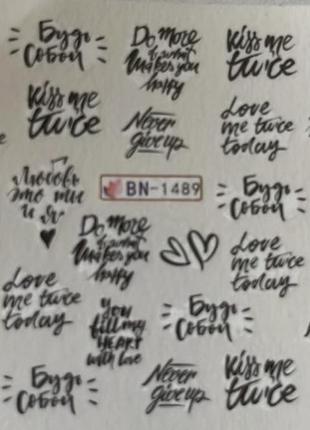 Будь
собой
Do more
of what
makes you
happy
Kiss me
twice
Kiss me
twice
Never
give up
Love
me twice
today
Любовь
это ты
и я
BN-1489
Будь
собой
Do more
of what
makes you
happy
Love
me twice
today
Love
me twice
today
You
fill my
HEART
with love
Будь
собой
Будь
собой
Never
give up
Kiss me
twice